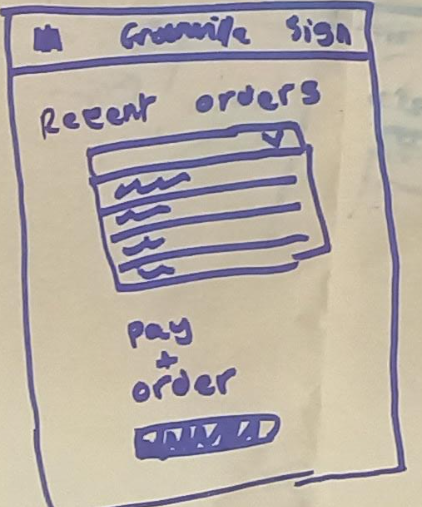 Greenville Sign
Recent orders
pay
+
order